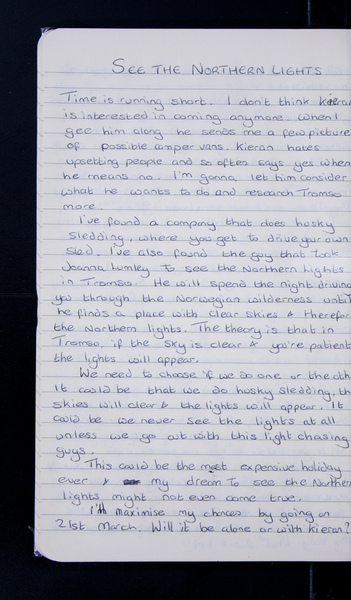 SEE THE NORTHERN LIGHTS
Time is running short. I don't think kieran
is interested in coming anymore. When I
gee him along he sends me a few picture
of possible camper vans. Kieran hates
upsetting people and so often says yes when
he means no. I'm gonna let him consider
what he wants to do and research Tromso
more.
I've found a company that does husky
sledding, where you get to drive your own
sled. I've also found the guy that took
Joanna Lumley to see the Northern Lights
in Tromso. He will spend the night driving
you through the Norwegian wilderness until
he finds a place with clear skies & therefor
the Northern lights. The theory is that in
Tromso, if the sky is clear & you're patient
the lights will appear.
We need to choose if we do one or the oth
It could be that we do husky sledding, th
skies will clear & the lights will appear. It
could be we never see the lights at all
unless we go out with this light chasing
guys.
This could be the most expensive holiday
ever & my dream to see the Northern
lights might not even come true.
I'll maximise my chances by going on
21st March. Will it be alone or with kieran?